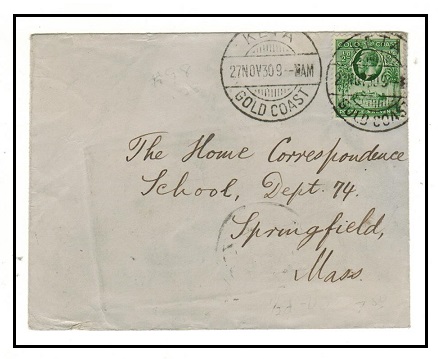 KETA
27NOV30 9--AM
GOLD COAST
GOLD COAST
The Home Correspondence
School, Dept. 74.
Springfield,
Mass.